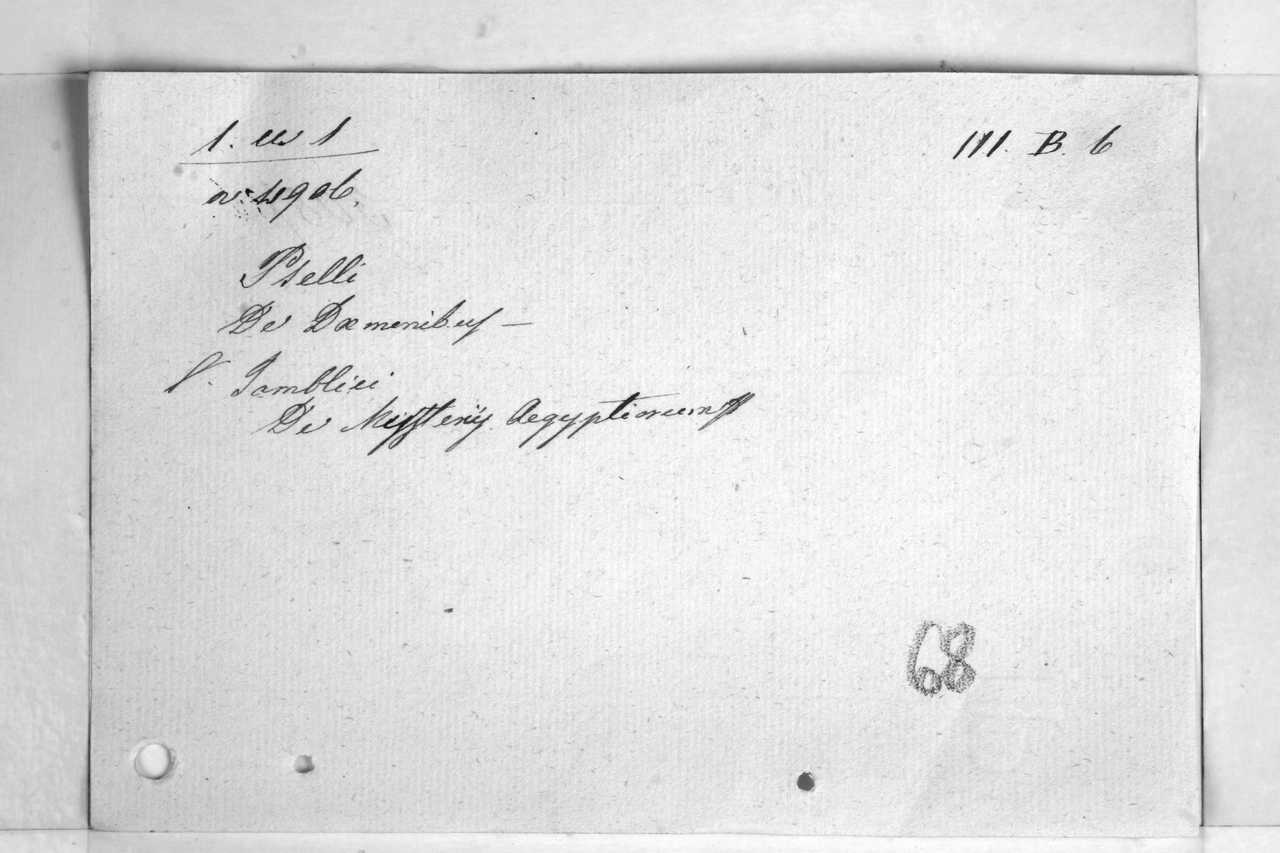 III. B. 6
Pselli
De Dæmonibus –
V. Jamblici
De Mysterijs Aegyptiorum
68